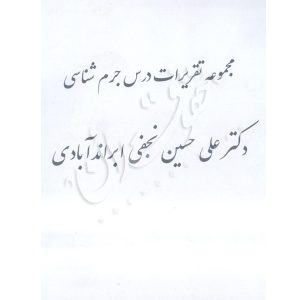 مجموعه تقریرات درس جرم شناسی
دکتر علی حسین نجفی ابراندآبادی